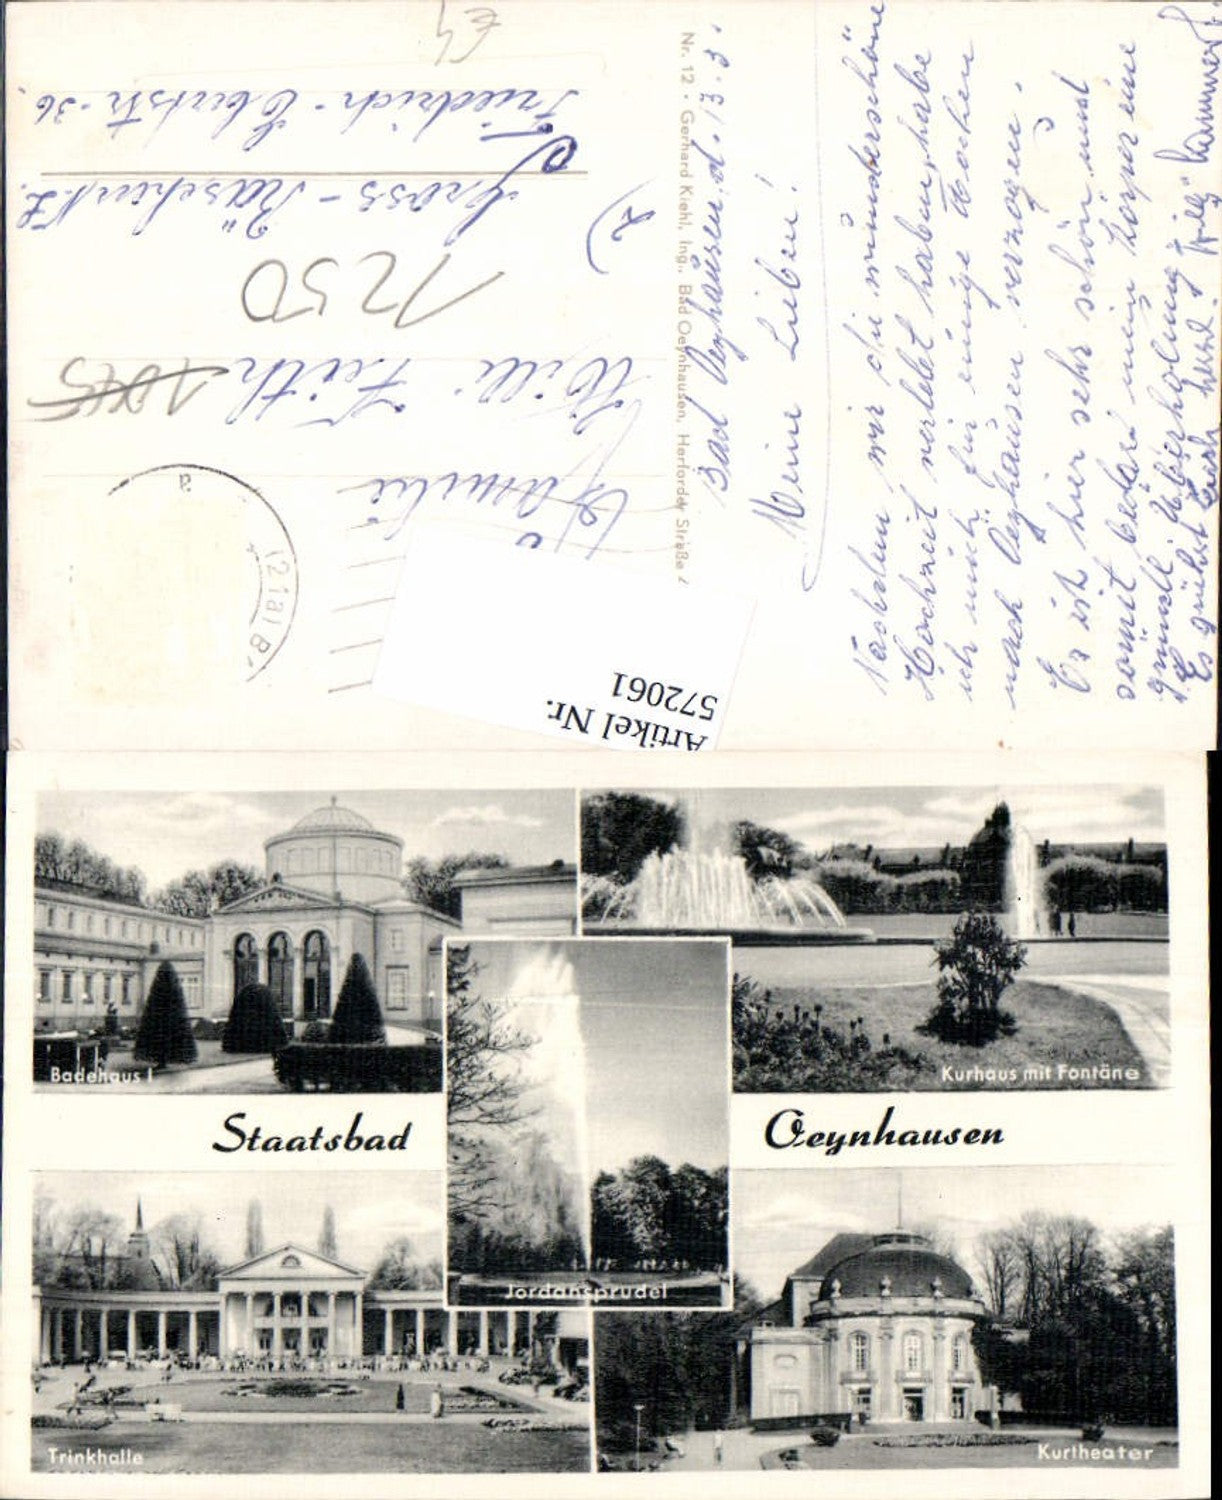 Bad Oeynhausen, d. 13.3.
Meine Lieben!
Nachdem wir die wunderschöne
Hochzeit verlebt haben, habe
ich mich für einige Wochen
nach Oeynhausen verzogen.
Es ist hier sehr schön und
somit bedarf mein Körper eine
generell Überholung
Es grüßt Euch herzl.
Nr. 12 · Gerhard Kiehl, Ing., Bad Oeynhausen, Herforder Straße
Familie
Willi Feith
1045
1250
2)
Gross-Räschen N.L.
Friedrich-Ebertstr. 36
€4
(21a) B
a
Artikel Nr.
572061
Badehaus I
Kurhaus mit Fontäne
Staatsbad Oeynhausen
Jordansprudel
Trinkhalle
Kurtheater